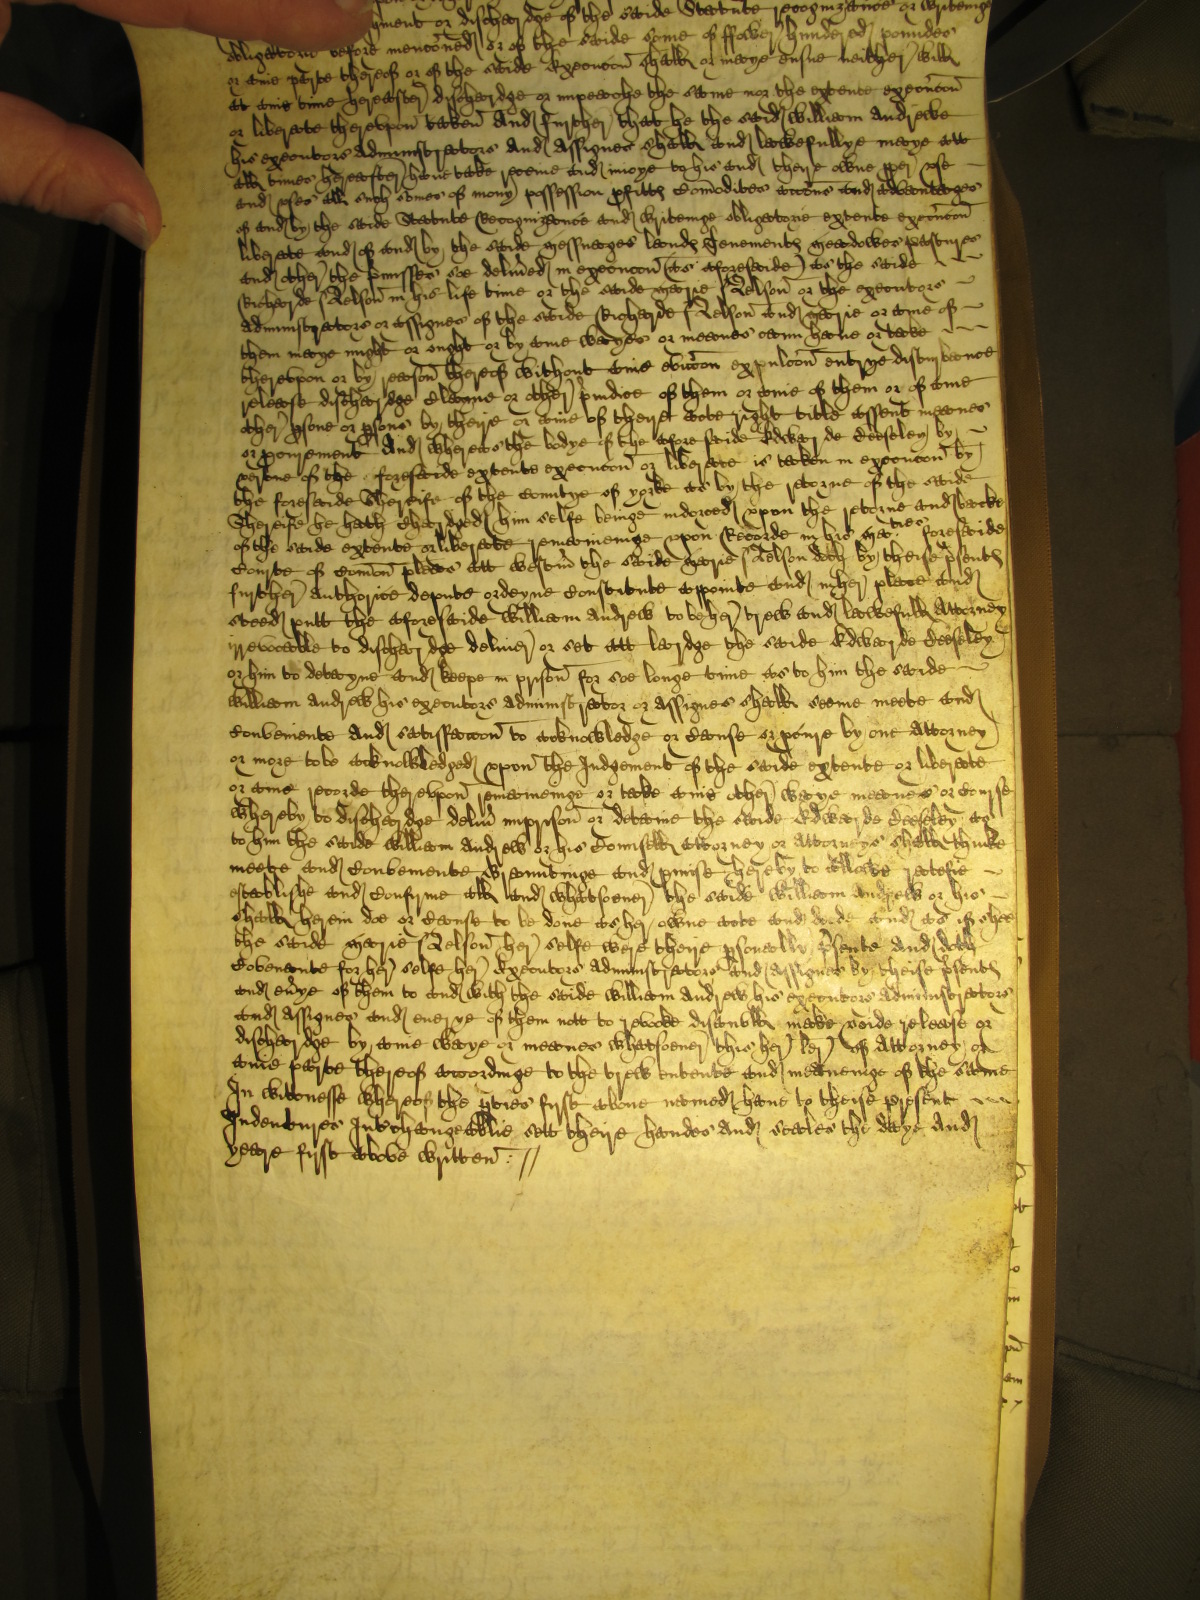 ment or dischardge of the saide Statute recognizance or writeinge
obligatorie before menconed or of the saide some of ffower hundered poundes
or anie parte thereof or of the saide execucon shall or maye ensue neither will
at anie time hereafter dischardge or impeache the same nor the extente execucon
or liberate therevpon taken And further that he the said william Andrewe
his executors administrators And Assignes shall and lawefullye maye att
all times hereafter haue take receiue and inioye to his and theire owne pper vse
and vses all such somes of mony possession pfitts Comodities accons and advantages
of and by the saide Statute Recognizance and writeinge obligatorie extente execucon
liberate and of and by the saide messuages lands Tenements meadowes pastures
and other the pmisses soe deliued in execucon (as aforesaide) as the saide
Richarde Nelson in his life time or the saide Marie Nelson or the executors
administrators or assignes of the saide Richarde Nelson and Marie or anie of
them maye might or ought or by anie wayes or meanes cann haue or take
therevpon or by reason thereof without anie eviccon expulcon entrye disturbance
release dischardge Clayme or other piudice of them or anie of them or of anie
other psone or psons by theire or anie of theire acte right title assent meanes
or pcurement And whereas the bodye of the aforesaide Edwarde Ceeseley by
vertue of the foresaide extente execucon or liberate is taken in execucon by
the foresaide Shereife of the Countye of yorke as by the retorne of the saide
Shereife he hath Chardged him selfe beinge indorced vpon the retorne and backe
of the saide extente or liberate remaineinge vpon Recorde in his Maties foresaide
Courte of Comon pleas att westm the saide Marie Nelson doth by theise psents
further authorise depute ordeyne Constitute appointe and in her place and
steed putt the aforesaide william Andrew to be her trew and lawefull Attorney
irrevocable to dischardge deliuer or set att lardge the saide Edwarde Ceeseley
or him to detayne and keepe in prison for soe longe time as to him the saide
william Andrew his executors administrator or assignes shall seeme meete and
Conveniente And satisfaccon to acknowledge or Cause or pcure by one Attorney
or more to be acknowledged vpon the Judgement of the saide extente or liberate
or anie recorde therevpon remaineinge or take anie other waye meanes or Course
whereby to dischardge deliu imprison or detaine the saide Edwarde Ceeseley as
to him the saide william Andrew or his Counsell attorney or Attorneys shall thinke
meete and Conveniente Grauntinge and pmise hereby to allowe ratefie
establishe and Confirme all and whatsoeuer the saide william Andrew or his
shall herein doe or Cause to be done as her owne acte and deede and as if shee
the saide Marie Nelson her selfe were theire psonally psente And doth
Covenante for her selfe her Executors administrators and assignes by theise psents
and euye of them to and with the saide william Andrew his executors administrators
and assignes and euerye of them not to revoke disanull make voide release or
dischardge by anie waye or meanes whatsoeuer this her ler of Attorney or
anie parte thereof accordinge to the trew entente and meaneinge of the same
In witnesse whereof the pties first aboue named haue to theise present
Indentures Interchangeablie sett theire handes And seales the daye And
yeare first aboue written